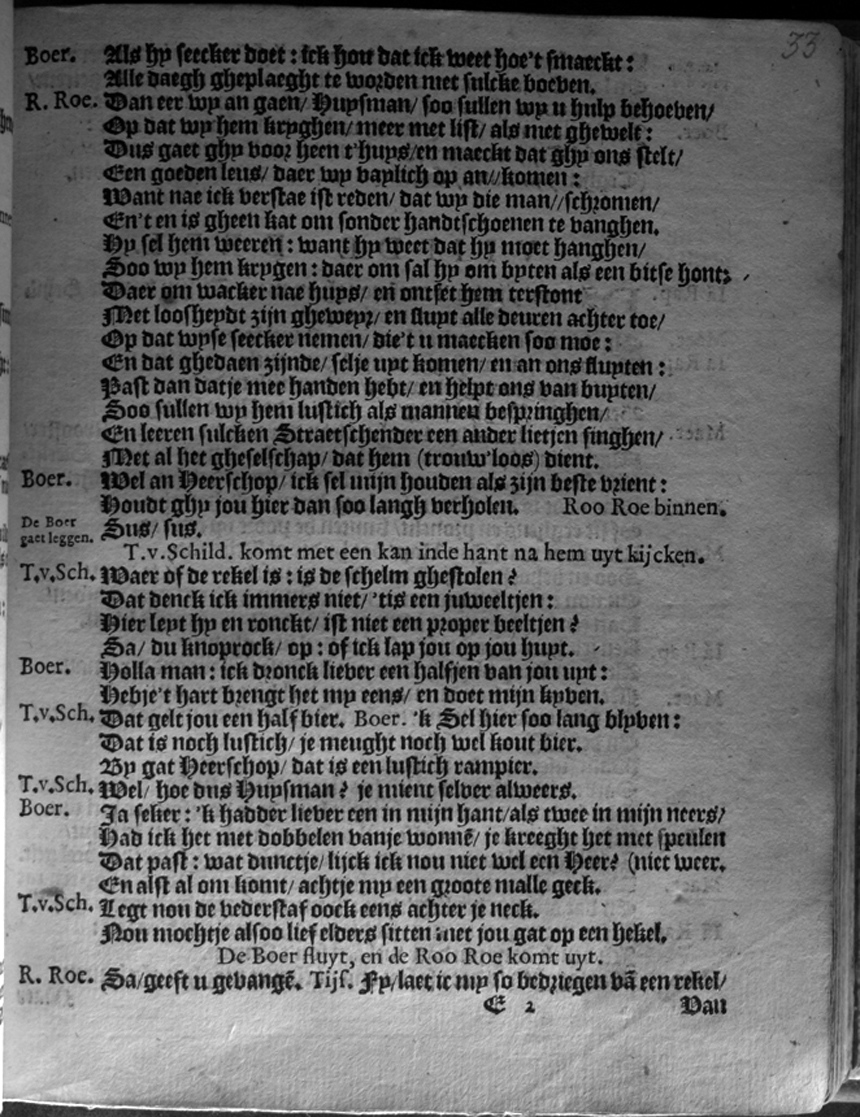 33
Boer. Als hy seecker doet : ick hou dat ick weet hoe't smaeckt :
Alle daegh gheplaeght te worden met sulcke boeven.
R. Roe. Dan eer wy an gaen/ Huysman/ soo sullen wy u hulp behoeven/
Op dat wy hem kryghen/ meer met list/ als met ghewelt :
Dus gaet ghy voor heen t'huys/en maeckt dat ghy ons stelt/
Een goeden leus/ daer wy vaylich op an//komen :
Want nae ick verstae ist reden/ dat wy die man//schromen/
En't en is gheen kat om sonder handtschoenen te vanghen.
Hy sel hem weeren : want hy weet dat hy moet hanghen/
Soo wy hem krygen : daer om sal hy om byten als een bitse hont;
Daer om wacker nae huys/ en ontset hem terstont
Met loosheydt zijn gheweyr/ en sluyt alle deuren achter toe/
Op dat wyse seecker nemen/ die't u maecken soo moe :
En dat ghedaen zijnde/ selje uyt komen/ en an ons fluyten :
Past dan datje mee handen hebt/ en helpt ons van buyten/
Soo sullen wy hem lustich als mannen bespringhen/
En leeren sulcken Straetschender een ander lietjen singhen/
Met al het gheselschap/ dat hem (trouw'loos) dient.
Boer. Wel an Heerschop/ ick sel mijn houden als zijn beste vrient :
Houdt ghy jou hier dan soo langh verholen. Roo Roe binnen.
De Boer gaet leggen. Sus/ sus.
T.v.Schild. komt met een kan inde hant na hem uyt kijcken.
T.v.Sch. Waer of de rekel is : is de schelm ghestolen ?
Dat denck ick immers niet/ 'tis een juweeltjen :
Hier leyt hy en ronckt/ ist niet een proper beeltjen ?
Sa/ du knoprock/ op : of ick lap jou op jou huyt.
Boer. Holla man : ick dronck liever een halfjen van jou uyt :
Hebje't hart brengt het my eens/ en doet mijn kyven.
T.v.Sch. Dat gelt jou een half bier. Boer. 'k Sel hier soo lang blyven :
Dat is noch lustich/ je meught noch wel kout bier.
By gat Heerschop/ dat is een lustich rampier.
T.v.Sch. Wel/ hoe dus Huysman ? je mient selver alweers.
Boer. Ja seker : 'k hadder liever een in mijn hant/als twee in mijn neers/
Had ick het met dobbelen vanje wonnē/ je kreeght het met speulen
Dat past : wat dunctje/ lijck ick nou niet wel een Heer? (niet weer.
En alst al om komt/ achtje my een groote malle geck.
T.v.Sch. Legt nou de vederstaf oock eens achter je neck.
Nou mochtje alsoo lief elders sitten met jou gat op een hekel.
De Boer fluyt, en de Roo Roe komt uyt.
R. Roe. Sa/geeft u gevangē. Tijs. Fy/laet ic my so bedriegen vā een rekel/
E 2 Van